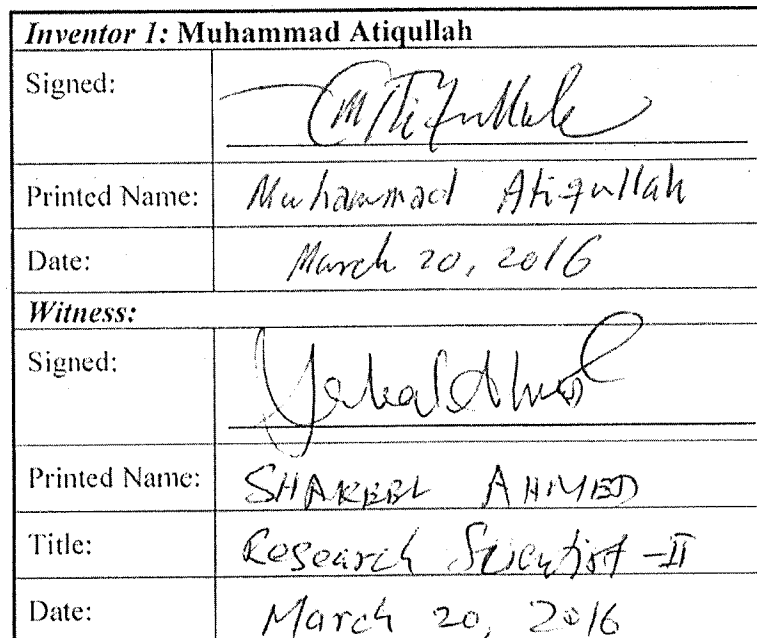 Inventor 1: Muhammad Atiqullah
Signed:
Printed Name: Muhammad Atiqullah
Date: March 20, 2016
Witness:
Signed:
Printed Name: SHAKEEL AHMED
Title: Research Scientist -II
Date: March 20, 2016